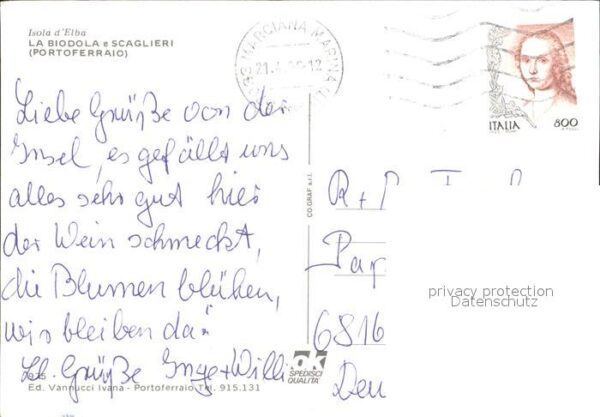 Isola d'Elba
LA BIODOLA e SCAGLIERI
(PORTOFERRAIO)
MARCIANA MARINA
ITALIA 800
Liebe Grüße von der
Insel, es gefällt uns
alles sehr gut hier
der Wein schmeckt,
die Blumen blühen,
wir bleiben da."
Lb. Grüße Inge + Willi
CO.GRAF s.r.l.
R +
Pap
privacy protection
Datenschutz
6816
Deu
OK
SPEDISCI
QUALITA'
Ed. Vannucci Ivana - Portoferraio Tel. 915.131